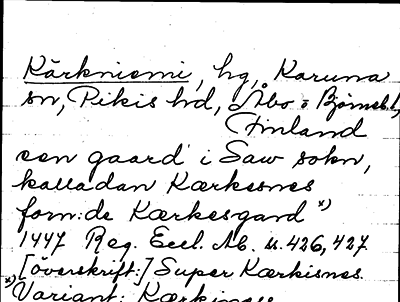 Kärkniemi, hg, Karuna
sn, Pikis hd, Åbo o Björneb.l,
Finland
een gaard i Saw sokn,
kalladan Kærkesnes
forn:de Kærkesgard x)
1447 Reg. Eccl. Ab. s. 426, 427
[överskrift:] Super Kærkisnes
x) Variant: Kærkines